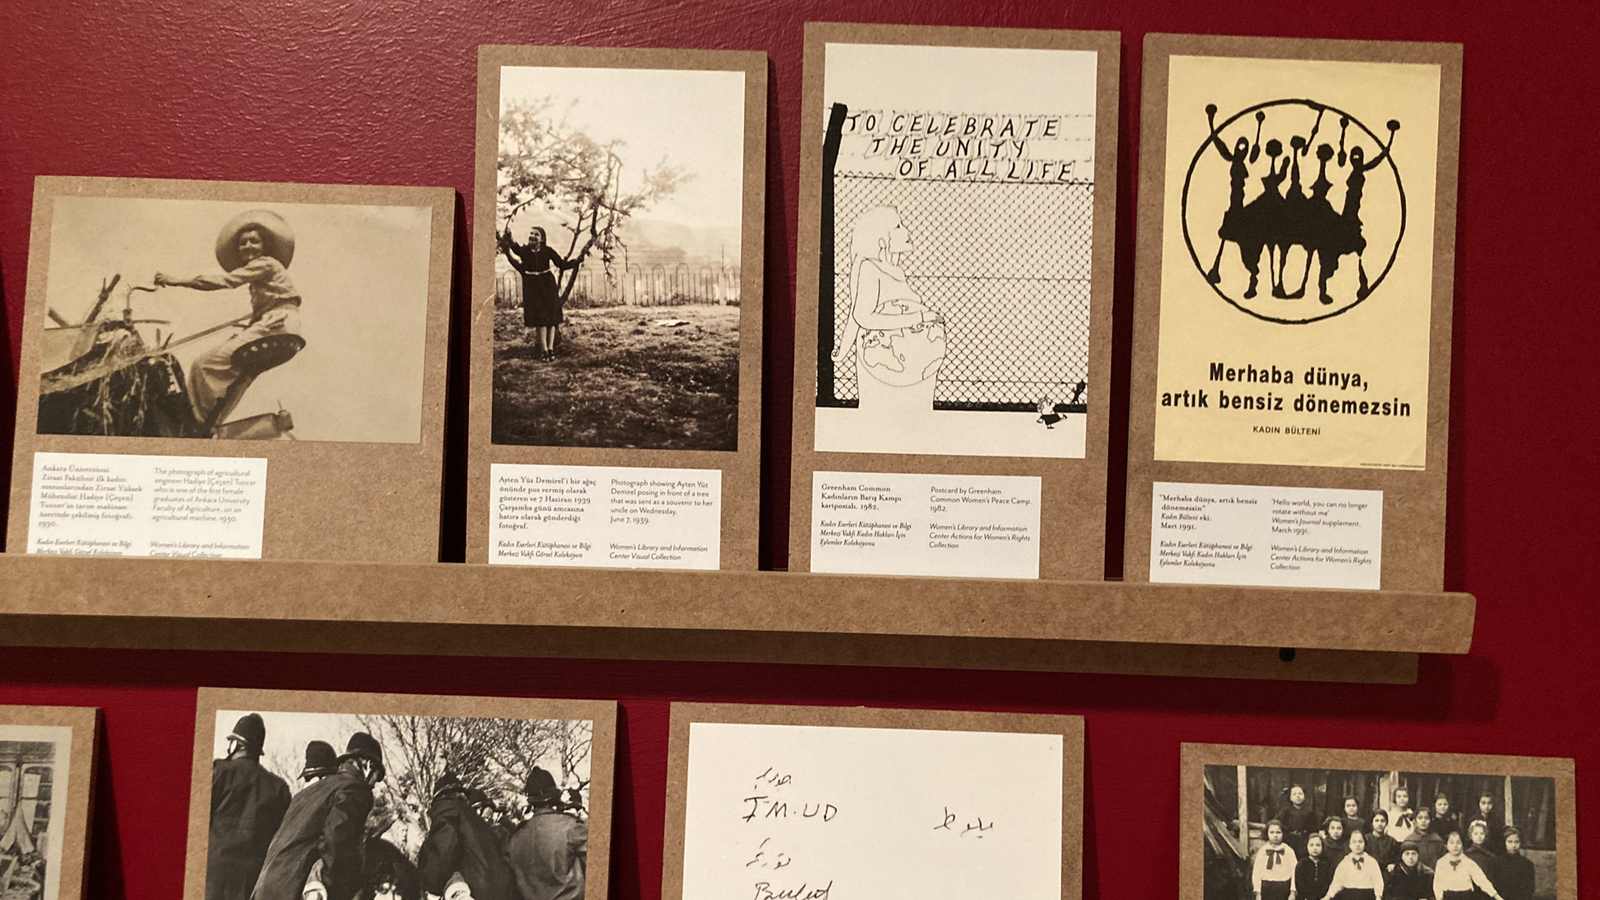 Ankara Üniversitesi
Ziraat Fakültesi ilk kadın
mezunlarından Ziraat Yüksek
Mühendisi Hadiye [Çeçen]
Tuncer'in tarım makinası
üzerinde çekilmiş fotoğrafı.
1930.
Kadın Eserleri Kütüphanesi ve Bilgi
Merkezi Vakfı Görsel Koleksiyon
The photograph of agricultural
engineer Hadiye [Çeçen] Tuncer
who is one of the first female
graduates of Ankara University
Faculty of Agriculture, on an
agricultural machine, 1930.
Women's Library and Information
Center Visual Collection
Ayten Yüz Demirel'i bir ağaç
önünde poz vermiş olarak
gösteren ve 7 Haziran 1939
Çarşamba günü amcasına
hatıra olarak gönderdiği
fotoğraf.
Kadın Eserleri Kütüphanesi ve Bilgi
Merkezi Vakfı Görsel Koleksiyon
Photograph showing Ayten Yüz
Demirel posing in front of a tree
that was sent as a souvenir to her
uncle on Wednesday,
June 7, 1939.
Women's Library and Information
Center Visual Collection
TO CELEBRATE
THE UNITY
OF ALL LIFE
Greenham Common
Kadınların Barış Kampı
kartpostalı. 1982.
Kadın Eserleri Kütüphanesi ve Bilgi
Merkezi Vakfı Kadın Hakları İçin
Eylemler Koleksiyonu
Postcard by Greenham
Common Women's Peace Camp.
1982.
Women's Library and Information
Center Actions for Women's Rights
Collection
Merhaba dünya,
artık bensiz dönemezsin
KADIN BÜLTENİ
"Merhaba dünya, artık bensiz
dönemezsin"
Kadın Bülteni eki.
Mart 1991.
Kadın Eserleri Kütüphanesi ve Bilgi
Merkezi Vakfı Kadın Hakları İçin
Eylemler Koleksiyonu
'Hello world, you can no longer
rotate without me'
Women's Journal supplement.
March 1991.
Women's Library and Information
Center Actions for Women's Rights
Collection
IM.UD
Bulut